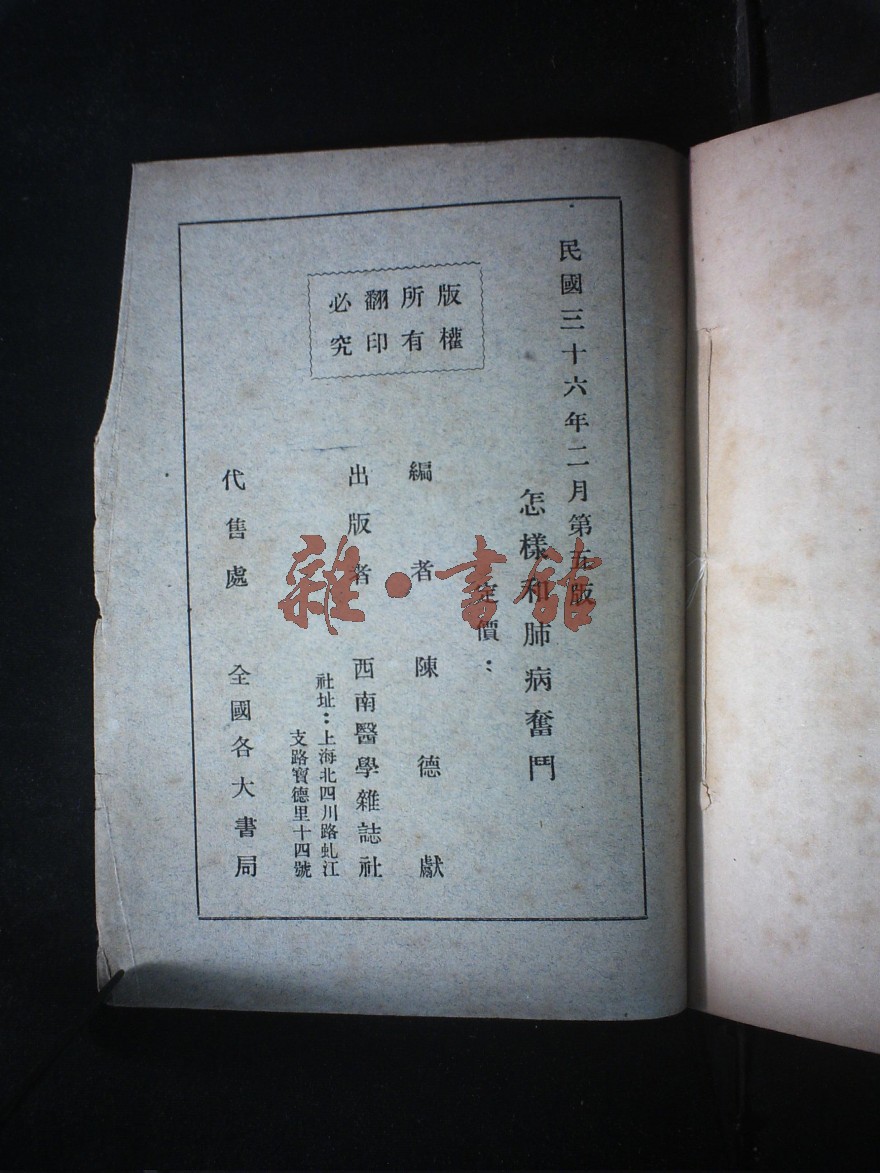 民國三十六年二月第五版
怎樣和肺病奮鬥
定價：
編者 陳德獻
出版者 西南醫學雜誌社
社址：上海北四川路虬江
支路寶德里十四號
代售處 全國各大書局
版權
所有
翻印
必究
雜·書館